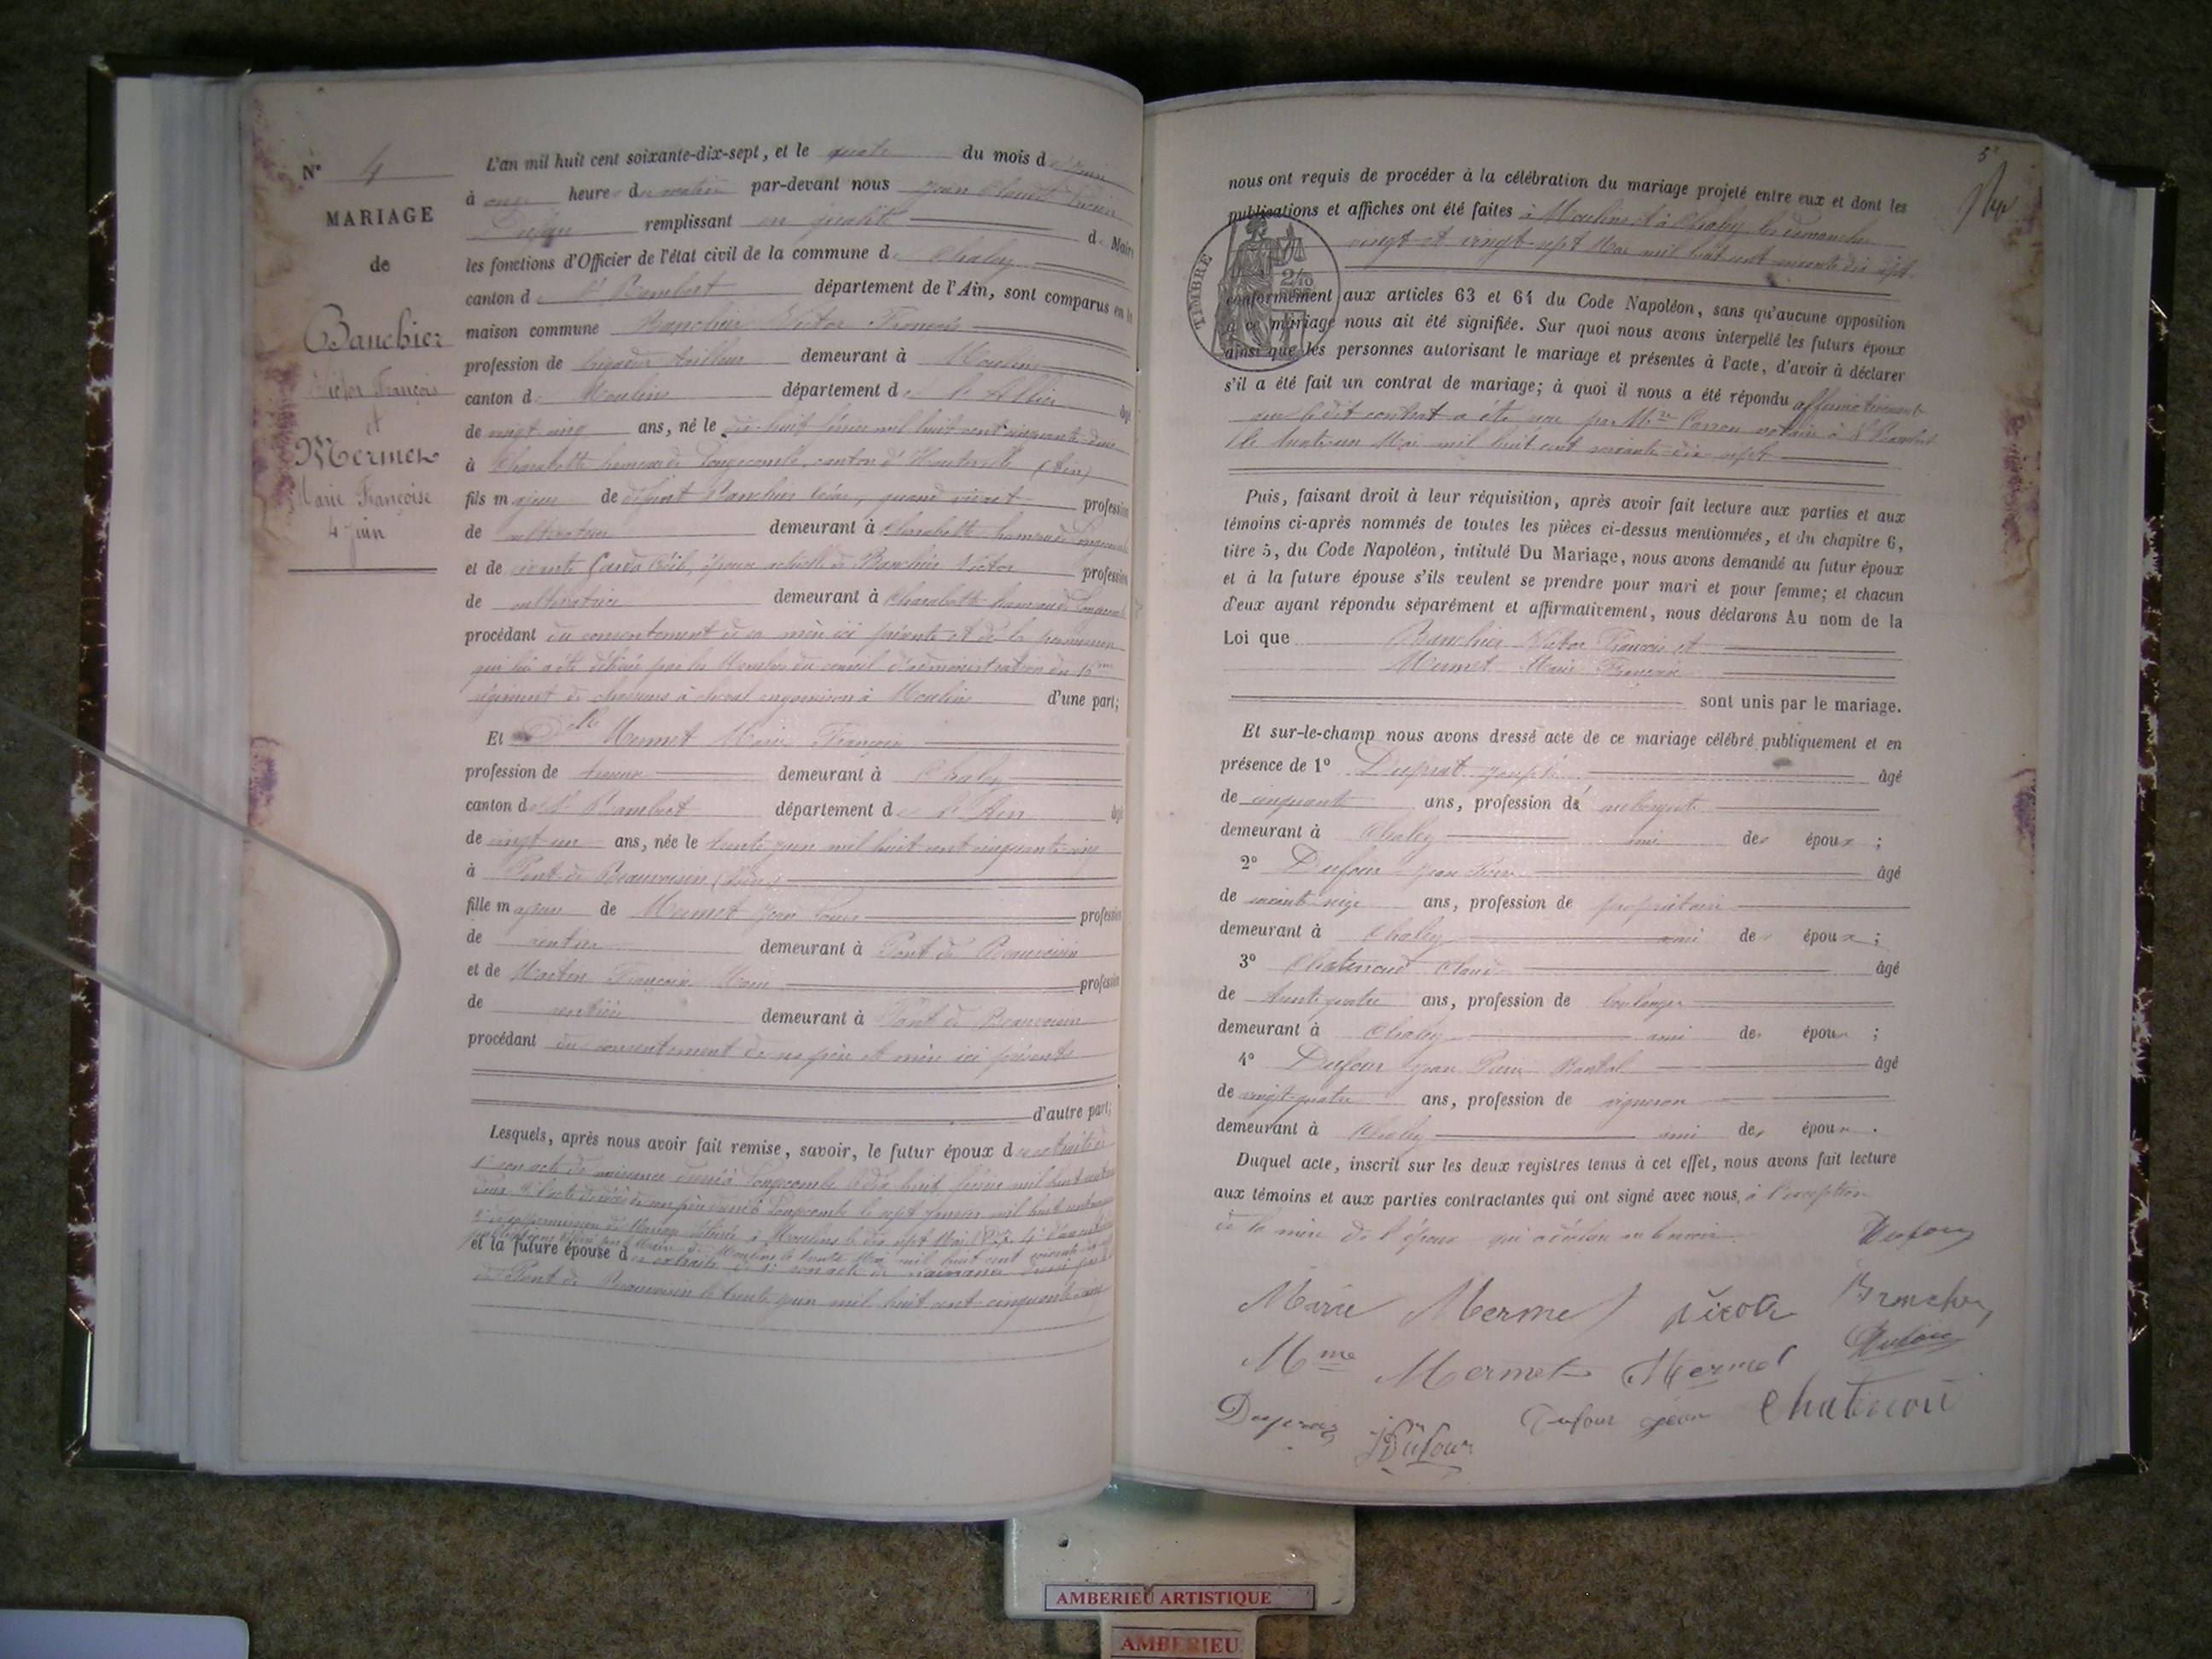 N° 4
MARIAGE
de
Banchier
Victor François
et
Mermet
Marie Françoise
4 juin
L'an mil huit cent soixante-dix-sept, et le quatre du mois de Juin
à onze heures du matin par-devant nous Jean Claude
Dufour remplissant en qualité de Maire
les fonctions d'Officier de l'état civil de la commune de Chaley
canton de St Rambert département de l'Ain, sont comparus en la
maison commune Banchier Victor François
profession de brigadier tailleur demeurant à Moulins
canton de Moulins département de l'Allier âgé
de vingt-cinq ans, né le dix-huit février mil huit cent cinquante-deux
à Charabotte hameau de Longecombe, canton d'Hauteville (Ain)
fils majeur de défunt Banchier quand vivait profession
de cultivateur demeurant à Charabotte hameau de Longecombe
et de vivante épouse actuelle de Banchier Victor profession
de cultivatrice demeurant à Charabotte hameau de Longecombe
procédant du consentement de sa mère ici présente et de la permission
qui lui a été délivrée par les Membres du conseil d'administration du
régiment de chasseurs à cheval en garnison à Moulins d'une part;
Et Delle Mermet Marie Françoise
profession de demeurant à Chaley
canton de St Rambert département de l'Ain âgé
de vingt-un ans, née le trente juin mil huit cent cinquante-cinq
à Pont-de-Beauvoisin
fille majeure de Mermet Jean Louis profession
de rentier demeurant à Pont de Beauvoisin
et de Françoise Marie profession
de rentière demeurant à Pont de Beauvoisin
procédant du consentement de ses père et mère ici présents
d'autre part;
Lesquels, après nous avoir fait remise, savoir, le futur époux des extraits de
1° son acte de naissance dressé à Longecombe le dix huit février mil huit cent
deux 2° l'acte de décès de son père dressé à Longecombe le sept janvier mil huit cent
3° de permission de Mariage délivrée à Moulins le dix sept Mai
publications Maire de Moulins le trente Mai mil huit cent soixante
et la future épouse des extraits de 1° son acte de naissance dressé
Pont de Beauvoisin le trente juin mil huit cent cinquante-cinq
5
nous ont requis de procéder à la célébration du mariage projeté entre eux et dont les
publications et affiches ont été faites à Moulins et à Chaley les dimanches
vingt et vingt-sept Mai mil huit cent soixante dix sept
TIMBRE
conformément aux articles 63 et 64 du Code Napoléon, sans qu'aucune opposition
à ce mariage nous ait été signifiée. Sur quoi nous avons interpellé les futurs époux
ainsi que les personnes autorisant le mariage et présentes à l'acte, d'avoir à déclarer
s'il a été fait un contrat de mariage; à quoi il nous a été répondu affirmativement
que le dit contrat a été reçu par Me notaire à St Rambert
le trente un Mai mil huit cent soixante-dix sept
Puis, faisant droit à leur réquisition, après avoir fait lecture aux parties et aux
témoins ci-après nommés de toutes les pièces ci-dessus mentionnées, et du chapitre 6,
titre 5, du Code Napoléon, intitulé Du Mariage, nous avons demandé au futur époux
et à la future épouse s'ils veulent se prendre pour mari et pour femme; et chacun
d'eux ayant répondu séparément et affirmativement, nous déclarons Au nom de la
Loi que Banchier Victor François et
Mermet Marie Françoise
sont unis par le mariage.
Et sur-le-champ nous avons dressé acte de ce mariage célébré publiquement et en
présence de 1° Joseph âgé
de cinquante ans, profession de aubergiste
demeurant à Chaley ami des époux ;
2° Dufour Jean Pierre âgé
de soixante seize ans, profession de propriétaire
demeurant à Chaley ami des époux ;
3° Chatenoud Claude âgé
de trente-quatre ans, profession de boulanger
demeurant à Chaley ami des époux ;
4° Dufour Jean Pierre âgé
de vingt-quatre ans, profession de vigneron
demeurant à Chaley ami des époux .
Duquel acte, inscrit sur les deux registres tenus à cet effet, nous avons fait lecture
aux témoins et aux parties contractantes qui ont signé avec nous, à l'exception
de la mère de l'époux qui a déclaré ne le savoir.
Dufour
Marie Mermet
Mme Mermet Mermet
Dufour Jean
Dufour
AMBERIEU ARTISTIQUE
AMBERIEU